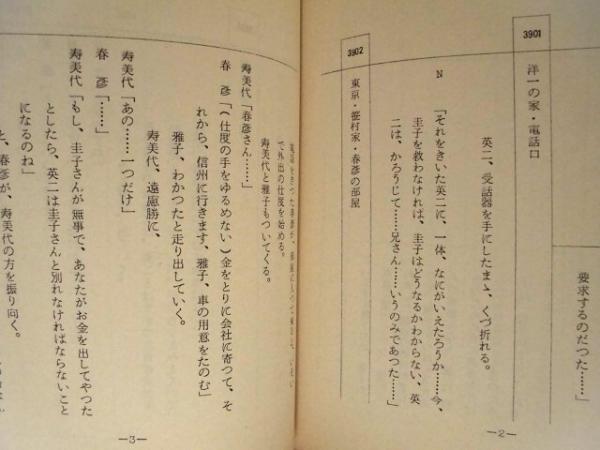 要求するのだつた……」
3901
洋一の家・電話口
英二、受話器を手にしたまゝ、くづ折れる。
N　「それをきいた英二に、一体、なにがいえたろうか……今、
圭子を救わなければ、圭子はどうなるかわからない、英
二は、かろうじて……兄さん……いうのみであつた……」
3902
東京・笹村家・春彦の部屋
－2－
で外出の仕度を始める。
寿美代と雅子もついてくる。
寿美代「春彦さん……」
春　彦「(仕度の手をゆるめない)金をとりに会社に寄つて、そ
れから、信州に行きます、雅子、車の用意をたのむ」
雅子、わかつたと走り出していく。
寿美代、遠慮勝に、
寿美代「あの……一つだけ」
春　彦「……」
寿美代「もし、圭子さんが無事で、あなたがお金を出してやつた
としたら、英二は圭子さんと別れなければならないこと
になるのね」
と、春彦が、寿美代の方を振り向く。
－3－